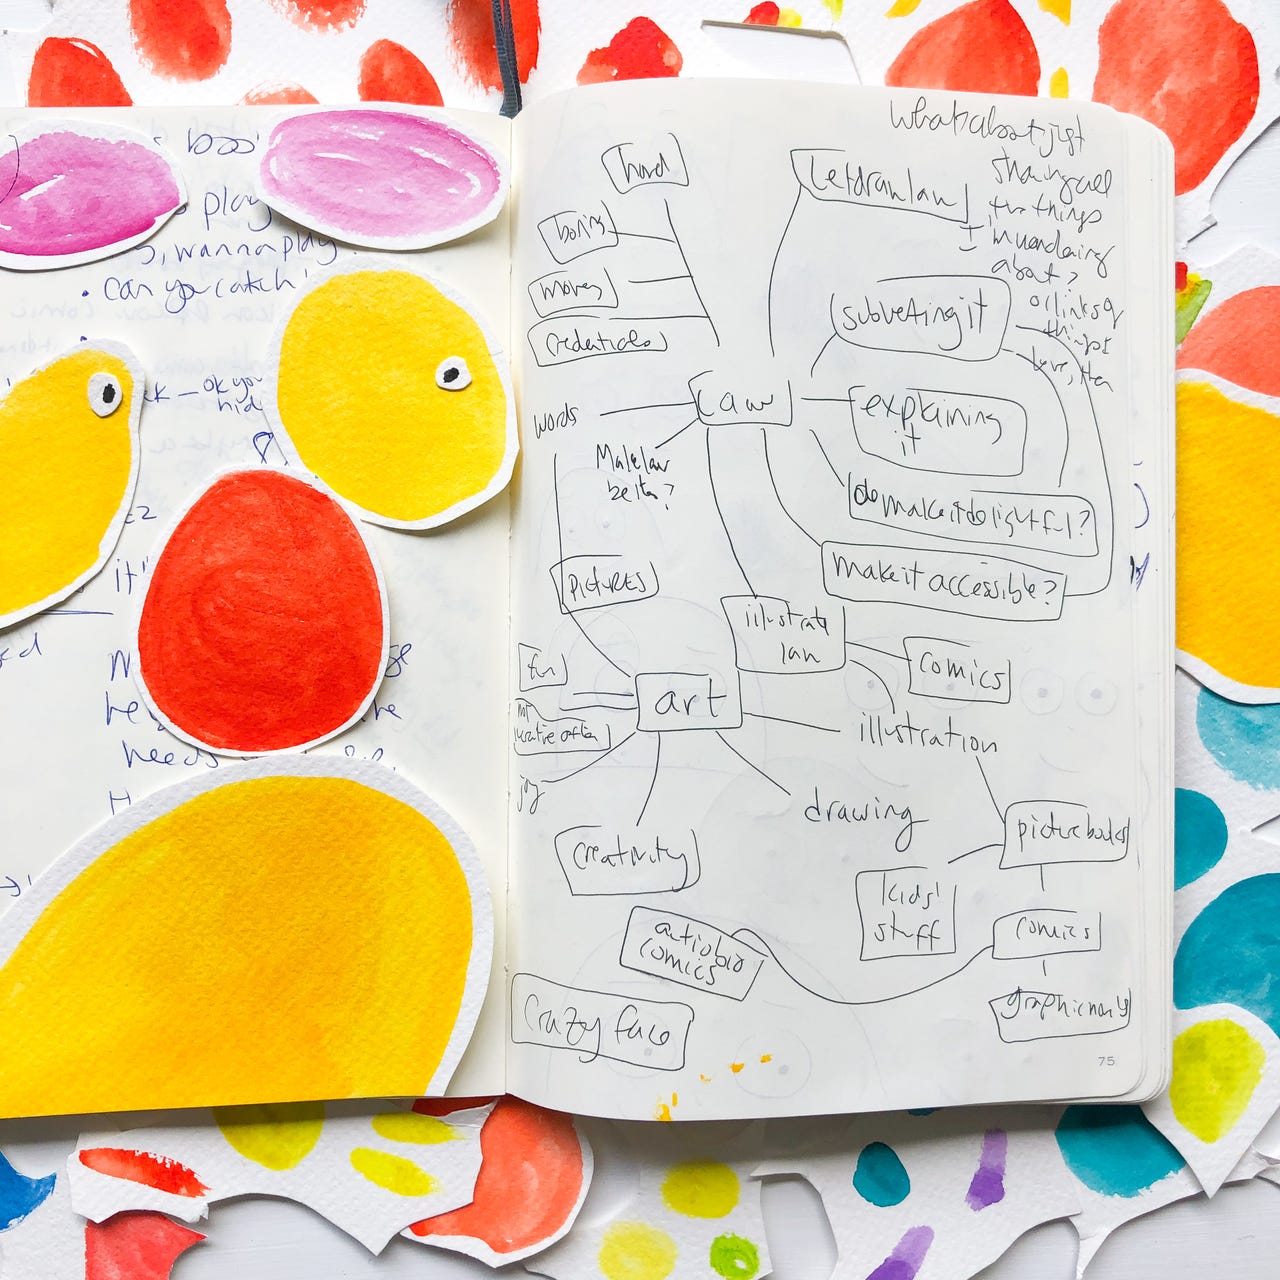 boo
play
, wanna play
• can you catch
ok you
hid
it's
needs
What about just
sharing all
the things
I'm wondering
about?
or links of
things I
love, then
hard
boring
money
credentials
Let draw law
subverting it
law
explaining
it
words
Make law
better?
do make it delightful?
make it accessible?
pictures
illustrate
law
comics
fun
art
not
lucrative often
joy
illustration
drawing
creativity
picture books
kids'
stuff
comics
autobio
comics
graphic novels
Crazy face
75